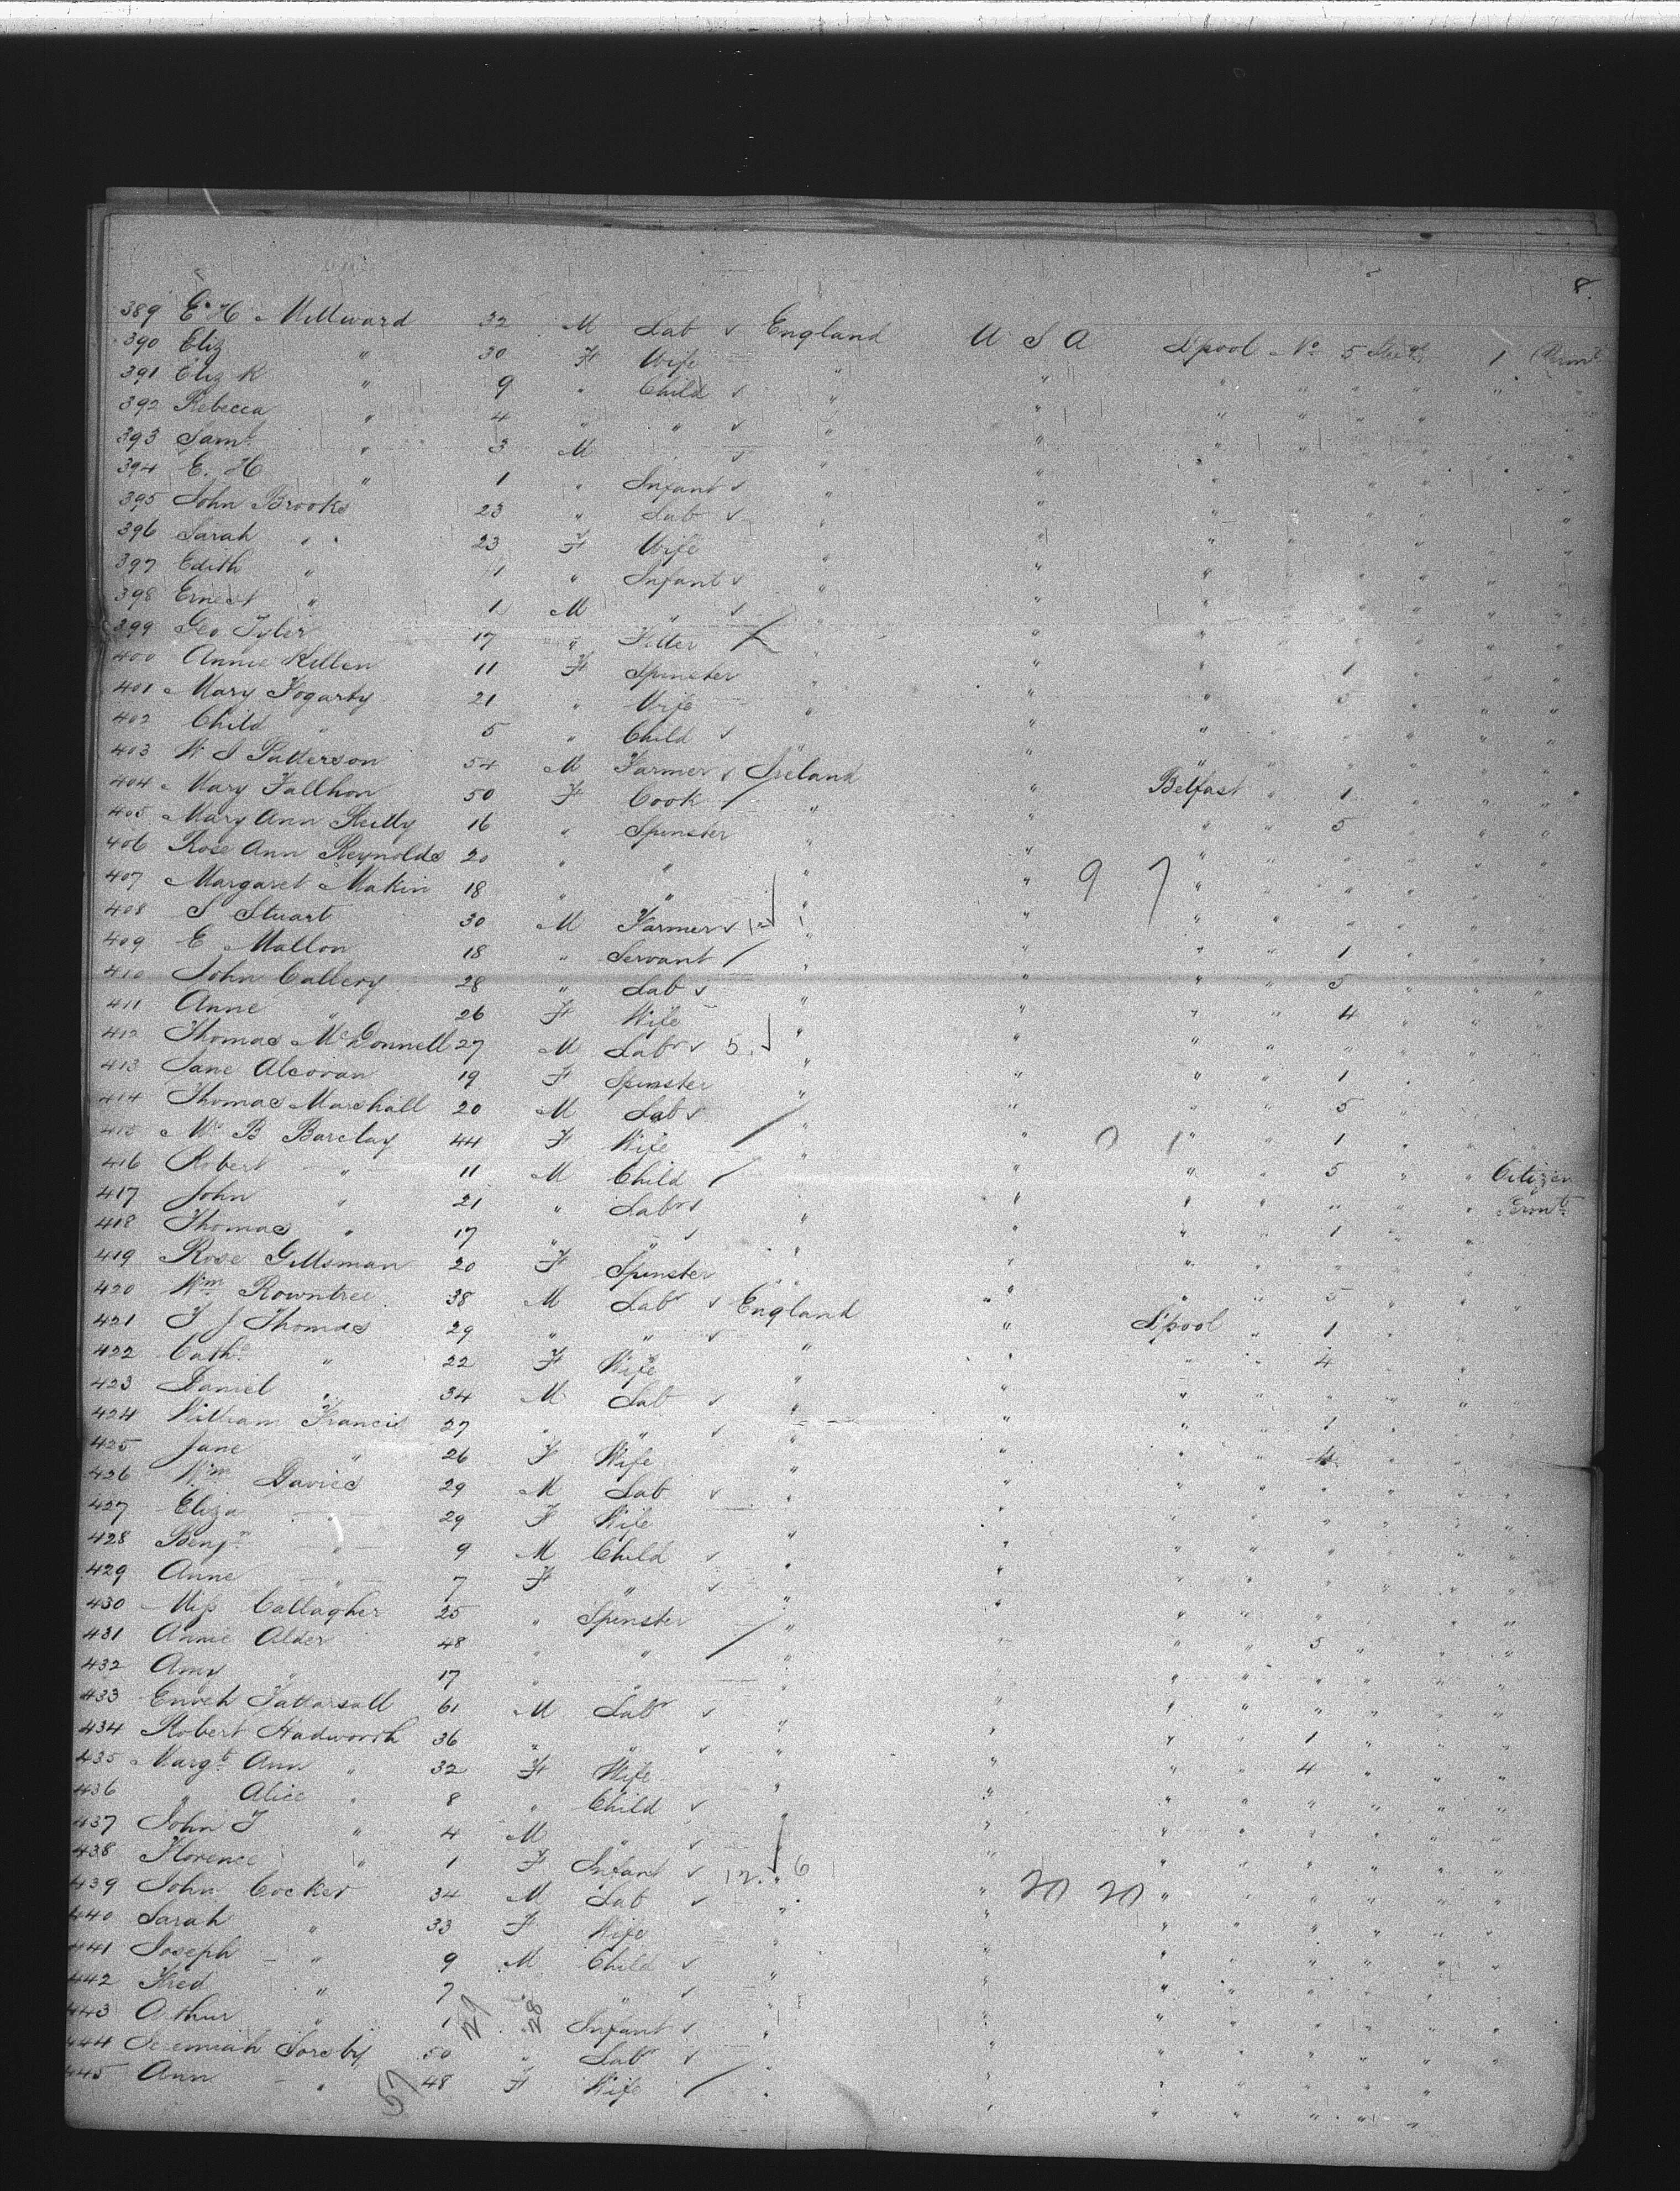 8
389 E. H Millward 32 M Lab ✓ England U S A L'pool No 5 1
390 Eliz " 30 F Wife " "
391 Eliz R " 9 " Child ✓ " "
392 Rebecca " 4 " " ✓ " "
393 Saml " 3 M " ✓ " "
394 E. H " 1 " Infant ✓ " "
395 John Brooks 23 " Lab ✓ " "
396 Sarah " 23 F Wife " "
397 Edith " 1 " Infant ✓ " "
398 Ernest " 1 M " ✓ " "
399 Geo. Tyler 17 " Fitter " " 1
400 Annie Killen 11 F Spinster " " 5
401 Mary Fogarty 21 " Wife " "
402 Child " 5 " Child ✓ " "
403 W S Patterson 54 M Farmer ✓ Ireland " Belfast " 1
404 Mary Fallhon 50 F Cook / " " 5
405 Mary Ann Kielly 16 " Spinster " "
406 Rose Ann Reynolds 20 " " " " 9 7
407 Margaret Makin 18 " " " "
408 S Stuart 30 M Farmer ✓ " " 1
409 E Mallon 18 " Servant / " " 5
410 John Callery 28 " Lab ✓ " " 4
411 Anne " 26 F Wife " "
412 Thomas McDonnell 27 M Labr ✓ 5 " " 1
413 Jane Alcoran 19 F Spinster " " 5
414 Thomas Marshall 20 M Lab ✓ " " 0 1 1
415 B Barclay 44 F Wife " " 5 Citizen
416 Robert " 11 M Child / " "
417 John " 21 " Labr ✓ " " 1
418 Thomas " 17 " " ✓ " "
419 Rose Gillsman 20 F Spinster " " 5
420 Wm Rowntree 38 M Labr ✓ England " L'pool " 1
421 T J Thomas 29 " " ✓ " " 4
422 Cath " 22 F Wife " "
423 Daniel " 34 M Lab ✓ " " 1
424 William Francis 27 " " ✓ " " 4
425 Jane " 26 F Wife " "
426 Wm Davies 29 M Lab ✓ " "
427 Eliza " 29 F Wife " "
428 Benjn " 9 M Child ✓ " "
429 Anne " 7 F " ✓ " "
430 Miss Callagher 25 " Spinster " " 5
431 Annie Alder 48 " " / " "
432 Amy " 17 " " " "
433 Enoch Tattarsall 61 M Labr ✓ " " 1
434 Robert Hadworth 36 " " ✓ " " 4
435 Margt Ann " 32 F Wife " "
436 " Alice " 8 " Child ✓ " "
437 John T " 4 M " ✓ " "
438 Florence " 1 F Infant ✓ 12. 6 " "
439 John Cocker 34 M Lab ✓ " " 20 20
440 Sarah " 33 F Wife " "
441 Joseph " 9 M Child ✓ " "
442 Fred " 7 " " ✓ " "
443 Arthur " 1 29 28 Infant ✓ " "
444 Jeremiah Soresby 50 " Labr ✓ " "
445 Ann " 57 48 F Wife / " "